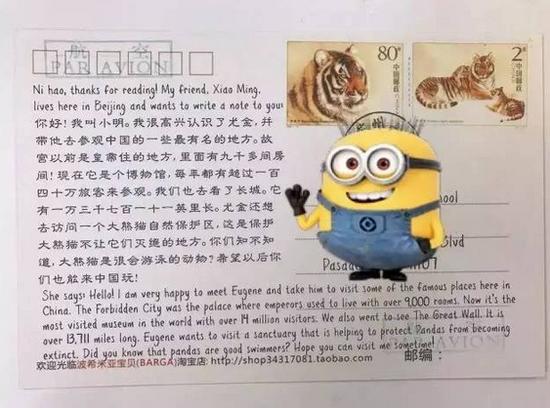 航 空
PAR AVION
80分
中国邮政
2元
中国邮政
Ni hao, thanks for reading! My friend, Xiao Ming,
lives here in Beijing and wants to write a note to you
你好!我叫小明。我很高兴认识了尤金,并
带他去参观中国的一些最有名的地方。故
宫以前是皇帝住的地方,里面有九千多间房
间!现在它是个博物馆,每年都有越过一百
四十万旅客来参观。我们也去看了长城。它
有一万三千七百一十一英里长。尤金还想
去访问一个大熊猫自然保护区,这是保护
大熊猫不让它们灭绝的地方。你们知不知
道,大熊猫是很会游泳的动物?希望以后你
们也能来中国玩!
hool
Blvd
Pasad
07
She says: Hello! I am very happy to meet Eugene and take him to visit some of the famous places here in
China. The Forbidden City was the palace where emperors used to live with over 9,000 rooms. Now it's the
most visited museum in the world with over 14 million visitors. We also went to see The Great Wall. It is
over 13,711 miles long. Eugene wants to visit a sanctuary that is helping to protect Pandas from becoming
extinct. Did you know that pandas are good swimmers? Hope you can visit me sometime!
PAR AVION
欢迎光临波希米亚宝贝(BARGA)淘宝店: http://shop34317081.taobao.com
邮编: